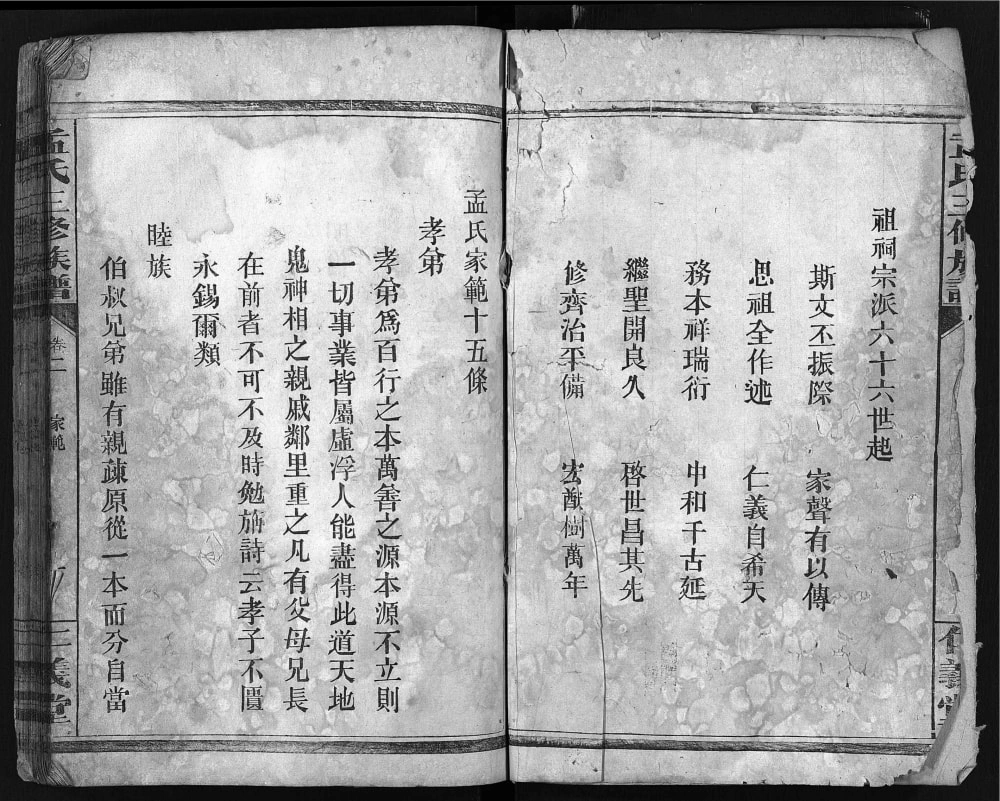 祖祠宗派六十六世起
斯文丕振際　家聲有以傳
思祖全作述　仁義自希天
務本祥瑞衍　中和千古延
繼聖開良久　啓世昌其先
修齊治平備　宏猷樹萬年
孟氏家範十五條
孝弟
孝弟爲百行之本萬善之源本源不立則
一切事業皆屬虛浮人能盡得此道天地
鬼神相之親戚鄰里重之凡有父母兄長
在前者不可不及時勉旃詩云孝子不匱
永錫爾類
睦族
伯叔兄弟雖有親疎原從一本而分自當
孟氏三修族譜
卷二
家範
三義堂